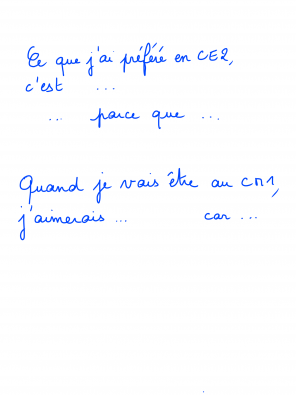 Ce que j'ai préféré en CE2,
c'est ...
... parce que ...
Quand je vais être au CM1,
j'aimerais ... car ...